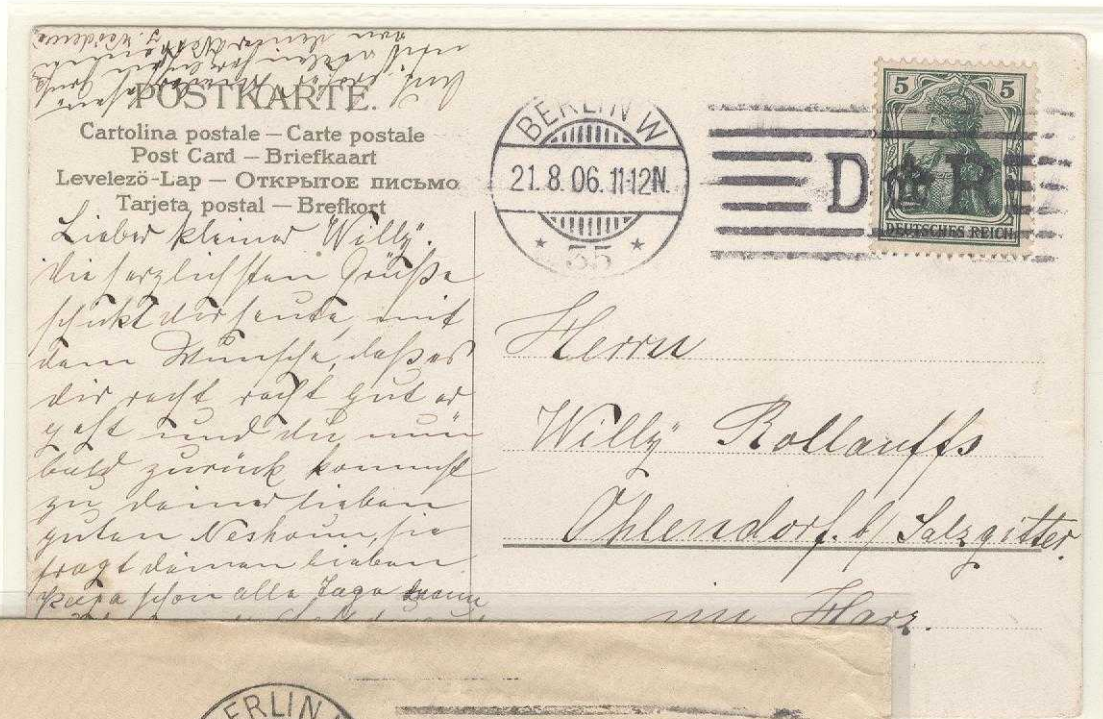 POSTKARTE.
Cartolina postale – Carte postale
Post Card – Briefkaart
Levelező-Lap – Открытое письмо
Tarjeta postal – Brefkort
BERLIN W
21.8.06. 11-12N.
* 35 *
D R
5 5
DEUTSCHES REICH
Lieber kleiner "Willy".
die herzlichsten Grüße
schickt dir heute, mit
dem Wunsche, daß es
dir recht recht gut er
geht und du nun
bald zurück kommst
zu deiner lieben
guten sie
fragt deinen lieben
Papa schon alle Tage wann
Herrn
Willy Rollauffs
Ohlendorf. b/ Salzgitter.
im Harz.
BERLIN